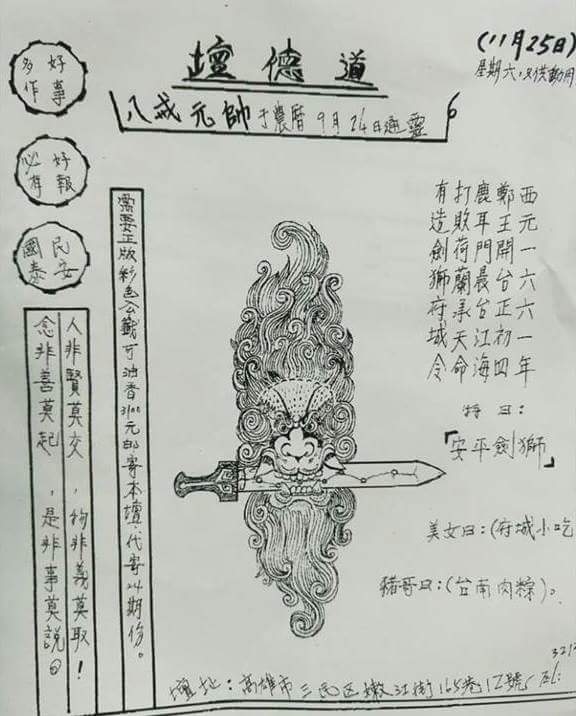 道德壇
(11月25日)
星期六,只供動用
八戒元帥于農曆9月24日通靈
好事
多作
好報
必有
民安
國泰
西元一六六一年
鄭王開台正初四
鹿耳門晨台江海
打敗荷蘭承天命
有造劍獅府城令
特曰:
「安平劍獅」
美女曰:(府城小吃
豬哥曰:(台南肉粽)。
需要正版彩色公籤可油香3100元的寄本壇,代寄24期份。
人非賢莫交,物非義莫取!
念非善莫起,是非事莫說。
壇址:高雄市三民区嫩江街165巷12號(Tel: